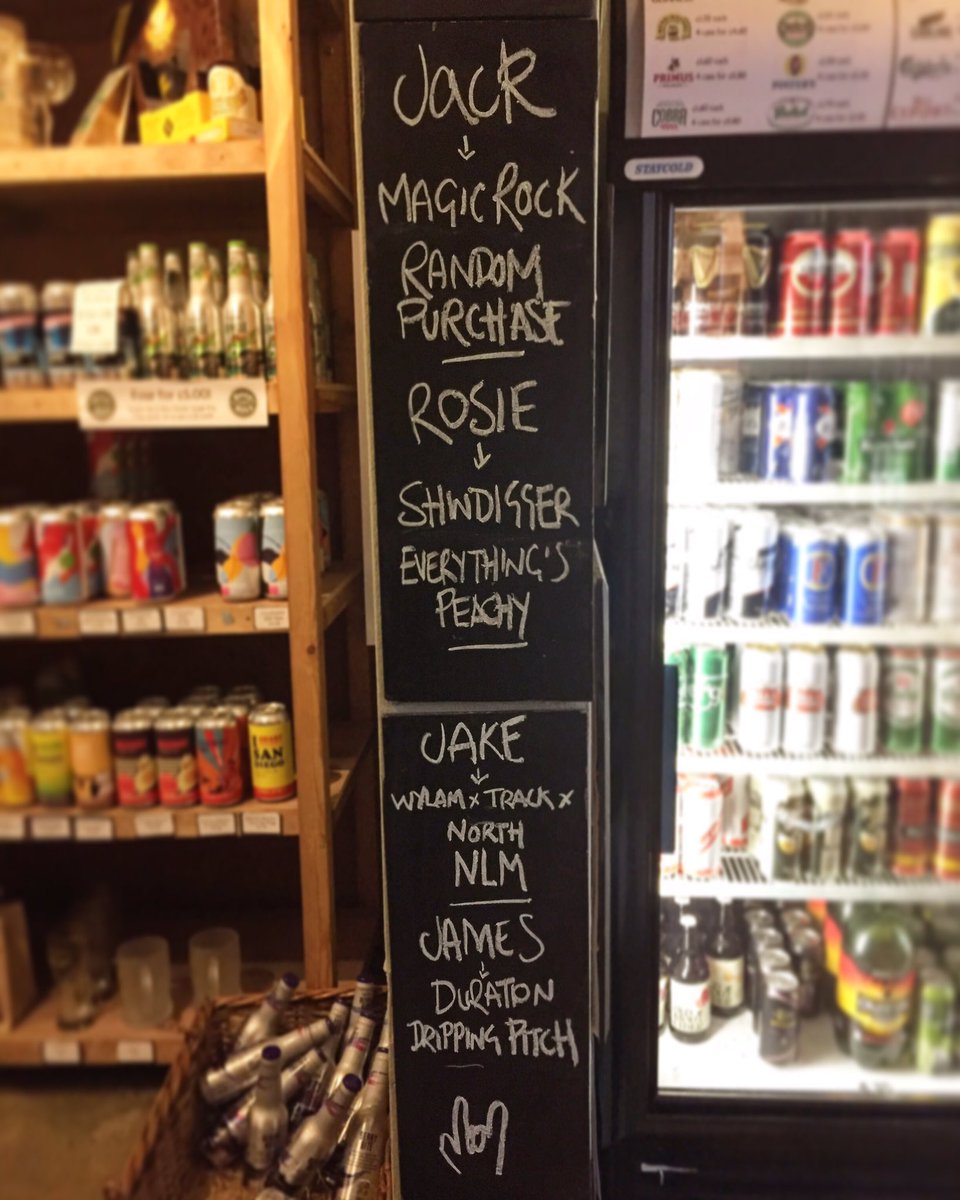 JACK
MAGIC ROCK
RANDOM
PURCHASE
ROSIE
SHINDIGGER
EVERYTHING'S
PEACHY
JAKE
WYLAM x TRACK x
NORTH
NLM
JAMES
DURATION
DRIPPING PITCH
STAYCOLD
PRIMUS
COBRA